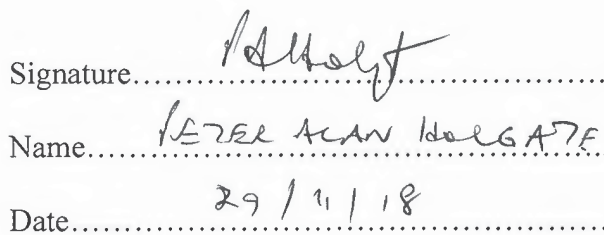 Signature.......... PAHolgt
Name.......... PETER ALAN HOLGATE
Date.......... 29/11/18